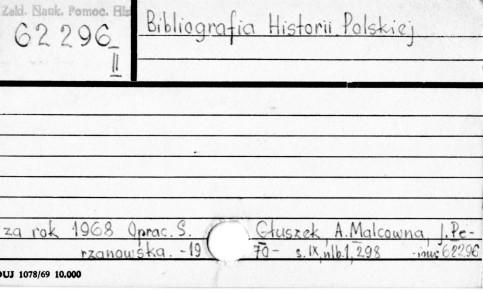 Zakl. Nauk. Pomoc. His
62 296
II
Bibliografia Historii Polskiej
za rok 1968 Oprac. S. Głuszek, A. Malcowna, J. Pe-
rzanowska. - 1970 - s. IX, nlb. 1, 298 62296
DUJ 1078/69 10.000